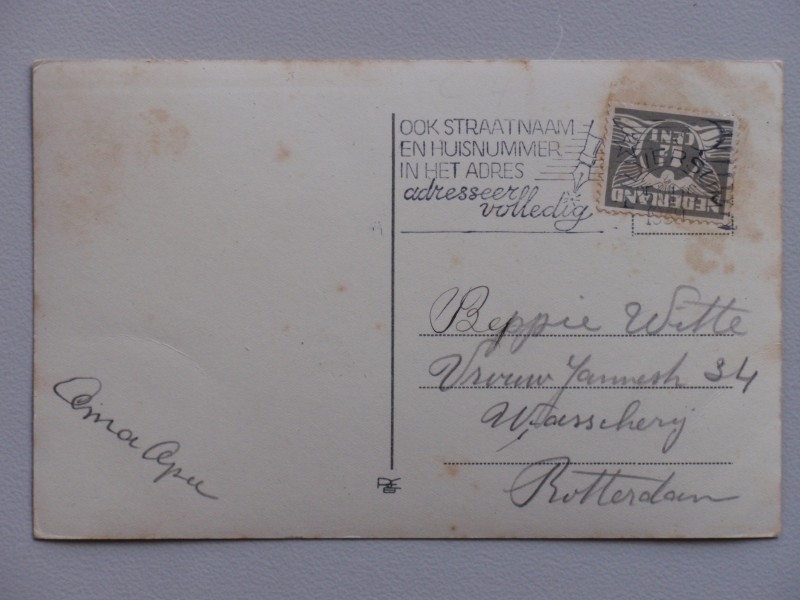 OOK STRAATNAAM
EN HUISNUMMER
IN HET ADRES
adresseer
volledig
CENT
NEDERLAND
Beppie Witte
Vrouw Jannestr 34
Wasscherij
Rotterdam